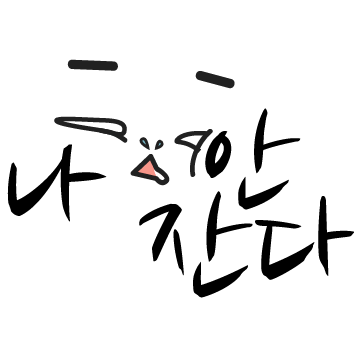 나 안
잔다